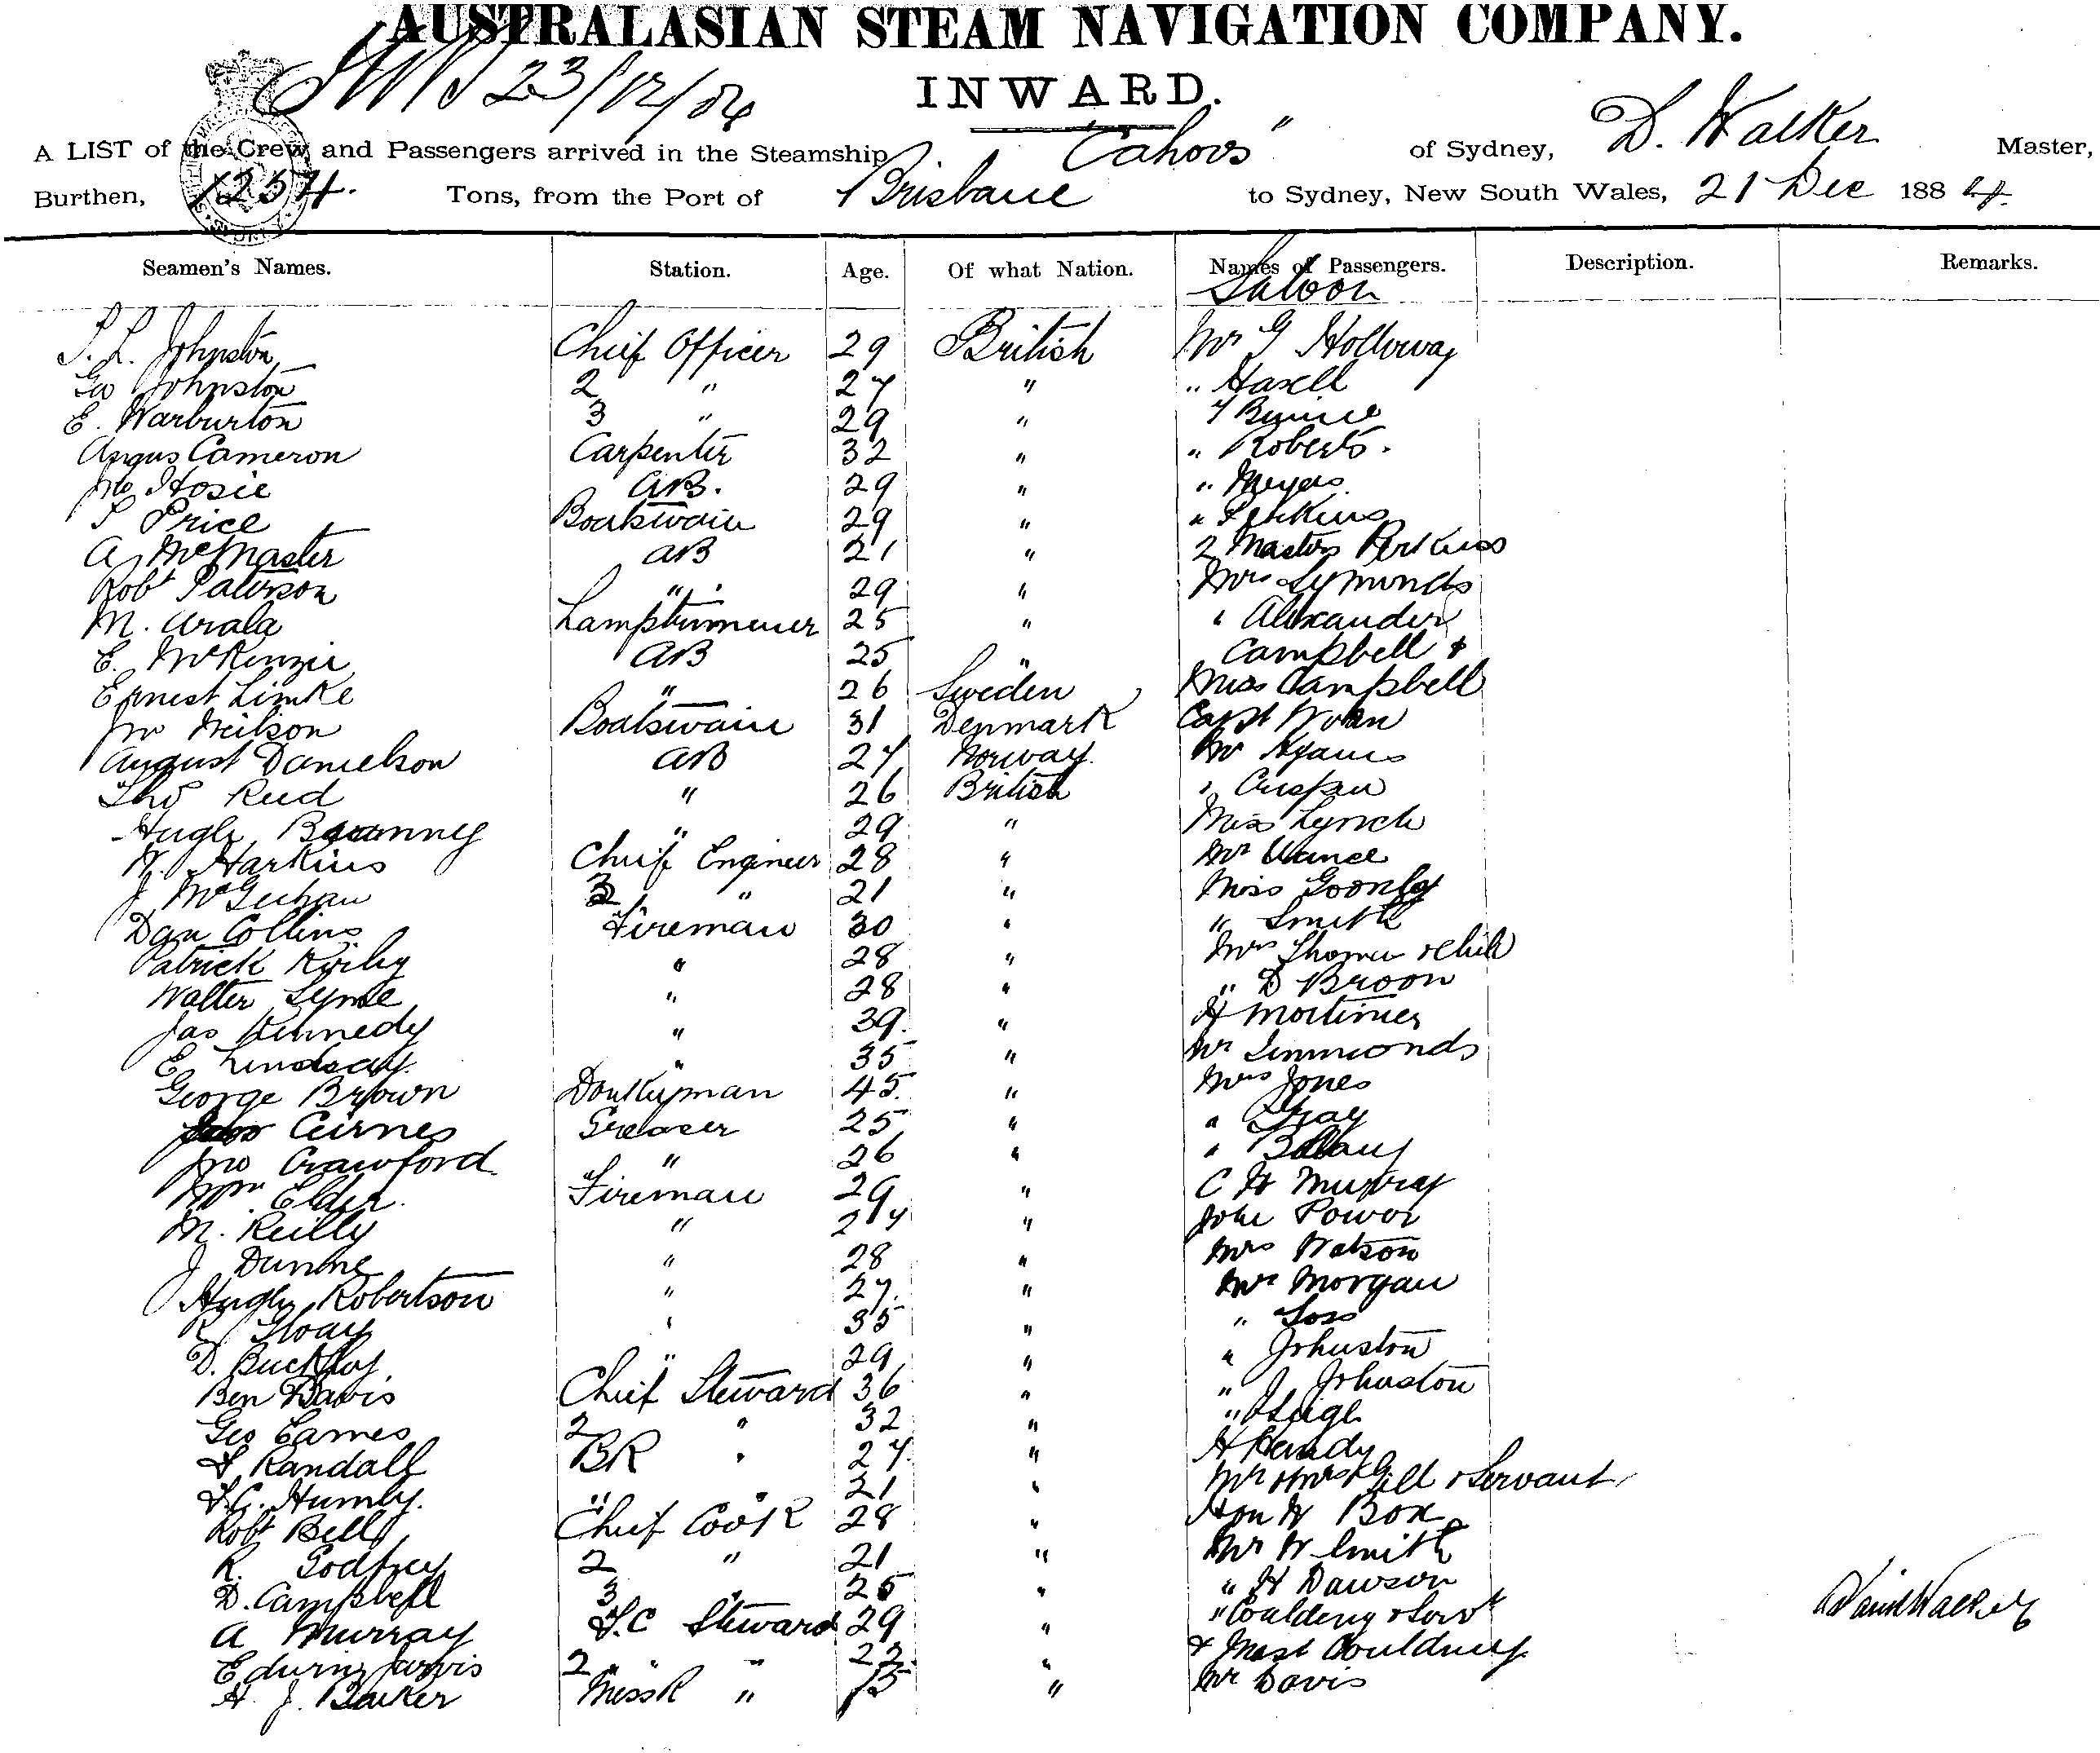 AUSTRALASIAN STEAM NAVIGATION COMPANY.
23/12/84
INWARD.
A LIST of the Crew and Passengers arrived in the Steamship "Cahors" of Sydney, D. Walker Master,
Burthen, 1254. Tons, from the Port of Brisbane to Sydney, New South Wales, 21 Dec 1884.
Seamen's Names. Station. Age. Of what Nation. Names of Passengers. Description. Remarks.
Saloon
Johnston Chief Officer 29 British Mr G Holloway
Geo Johnston 2 " 27 " " Haxell
E. Warburton 3 " 29 "
Angus Cameron Carpenter 32 " " Roberts.
Jno Hosie AB. 29 " " Meyers
Price Boatswain 29 " " Perkins
A McMaster AB 21 " 2 Masters Perkins
Robt Paterson " 29 " Mrs Symonds
M. Arala Lamptrimmer 25 " " Alexander
E. McKenzie AB 25 " Campbell &
Ernest Limke " 26 Sweden Miss Campbell
Jno Neilson Boatswain 31 Denmark Capt
August Danielson AB 27 Norway. Mr
Thos Reid " 26 British "
Hugh " 29 " Miss Lynch
W. Harkins Chief Engineer 28 " Mr
J. 21 " Miss
Dan Collins Fireman 30 " " Smith
Patrick " 28 " Mrs
Walter " 28 " " D Broon
Jas Kennedy " 39. " H Mortimer
E Lindsay. " 35 " Mr Simmonds
George Brown Donkeyman 45. " Mrs Jones
Cairnes Greaser 25 " " Gray
Jno Crawford " 26 " "
Wm. Elder. Fireman 29 " C H Murray
M. Reilly " 27 " John Power
J Dunne " 28 " Mrs Watson
Hugh Robertson " 27. " Mr Morgan
R " 35 " "
D. Buckley " 29 " " Johnston
Ben Davis Chief Steward 36 " " J Johnston
Geo Eames 2 " 32 " "
Randall BR " 27. " H Hendy
Humby. " " 21 " Mr & Mrs Gill & Servant
Robt Bell Chief Cook 28 " Hon W Box
R. Godfrey 2 " 21 " Mr W Smith
D. Campbell 3 " 25 " " H Dawson
A Murray F.C Steward 29 " " Couldery & Servt
Edwin Jarvis 2 " " 22. " & Mast Couldery
H. J. Barker MessR " 15 " Mr Davis
David Walker